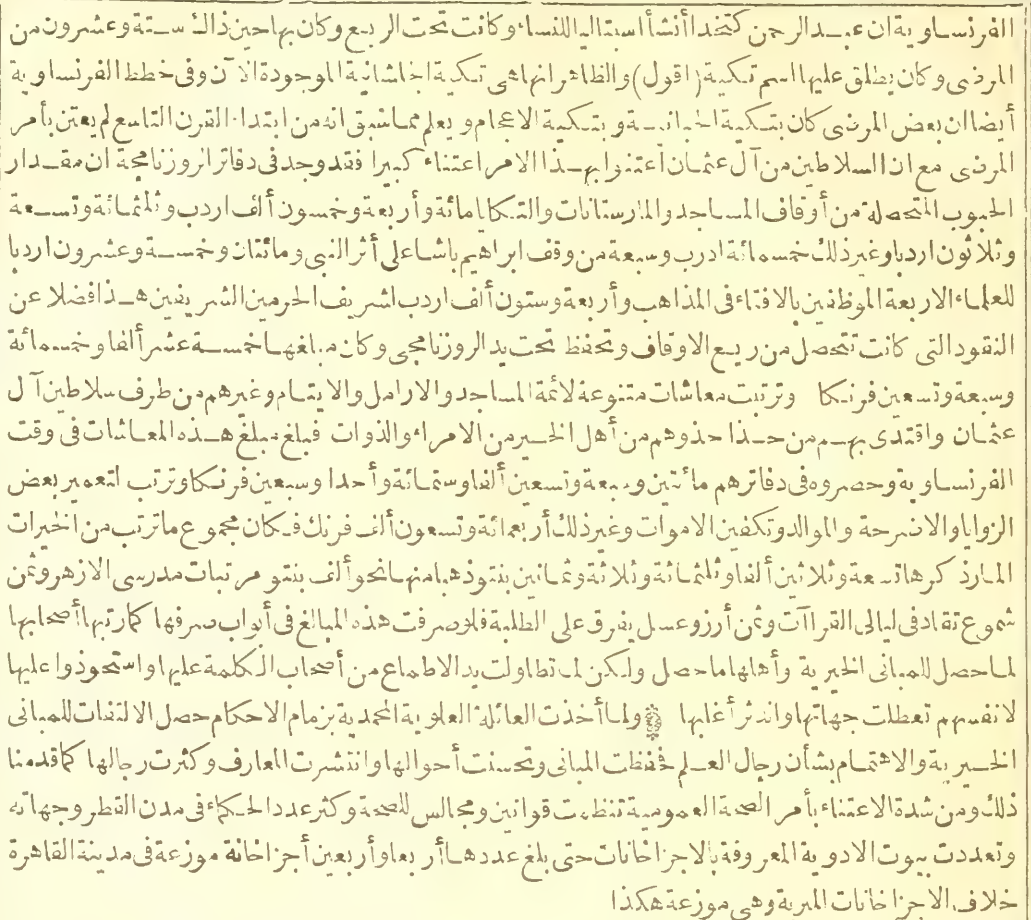 الفرنساوية ان عبدالرحمن كتخدا أنشأ اسبتاليا للنساء وكانت تحت الربع وكان بها حين ذاك ستة وعشرون من
المرضى وكان يطلق عليها اسم تكية (اقول) والظاهر انها هى تكية الجلشانية الموجودة الآن وفى خطط الفرنساوية
أيضا ان بعض المرضى كان بتكية الحبانية وبتكية الاعجام ويعلم مما سبق انه من ابتداء القرن التاسع لم يعتن بأمر
المرضى مع ان السلاطين من آل عثمان اعتنوا بهذا الامر اعتناء كبيرا فقد وجد فى دفاتر الروزنامجة ان مقدار
الحبوب المتحصلة من أوقاف المساجد والمارستانات والتكايا مائة وأربعة وخمسون ألف اردب وثلثمائة وتسعة
وثلاثون اردبا وغير ذلك خمسمائة ادرب وسبعة من وقف ابراهيم باشا على أثر النبى ومائتان وخمسة وعشرون اردبا
للعلماء الاربعة الموظفين بالافتاء فى المذاهب وأربعة وستون ألف اردب لشريف الحرمين الشريفين هذا فضلا عن
النقود التى كانت تتحصل من ريع الاوقاف وتحفظ تحت يد الروزنامجى وكان مبلغها خمسة عشر ألفا وخمسمائة
وسبعة وتسعين فرنكا وترتبت معاشات متنوعة لائمة المساجد والارامل والايتام وغيرهم من طرف سلاطين آل
عثمان واقتدى بهم من حذا حذوهم من أهل الخير من الامراء والذوات فبلغ مبلغ هذه المعاشات فى وقت
الفرنساوية وحصروه فى دفاترهم مائتين وسبعة وتسعين ألفا وستمائة وأحدا وسبعين فرنكا وترتب لتعمير بعض
الزوايا والاضرحة والموالد وتكفين الاموات وغير ذلك أربعمائة وتسعون ألف فرنك فكان مجموع ما ترتب من الخيرات
المار ذكرها تسعة وثلاثين ألفا وثلثمائة وثلاثة وثمانين بنتو ذهبا منها نحو ألف بنتو مرتبات مدرسى الازهر وثمن
شموع تقاد فى ليالى القراآت وثمن أرز وعسل يفرق على الطلبة فلو صرفت هذه المبالغ فى أبواب صرفها كما رتبها أصحابها
لما حصل للمبانى الخيرية وأهلها ما حصل ولكن لما تطاولت يد الاطماع من أصحاب الكلمة عليها واستحوذوا عليها
لانفسهم تعطلت جهاتها واندثر أغلبها ولما أخذت العائلة العلوية المحمدية بزمام الاحكام حصل الالتفات للمبانى
الخيرية والاهتمام بشأن رجال العلم فحفظت المبانى وتحسنت أحوالها وانتشرت المعارف وكثرت رجالها كما قدمنا
ذلك ومن شدة الاعتناء بأمر الصحة العمومية تنظمت قوانين ومجالس للصحة وكثر عدد الحكماء فى مدن القطر وجهاته
وتعددت بيوت الادوية المعروفة بالاجزاخانات حتى بلغ عددها أربعا وأربعين أجزاخانة موزعة فى مدينة القاهرة
خلاف الاجزاخانات الميرية وهى موزعة هكذا